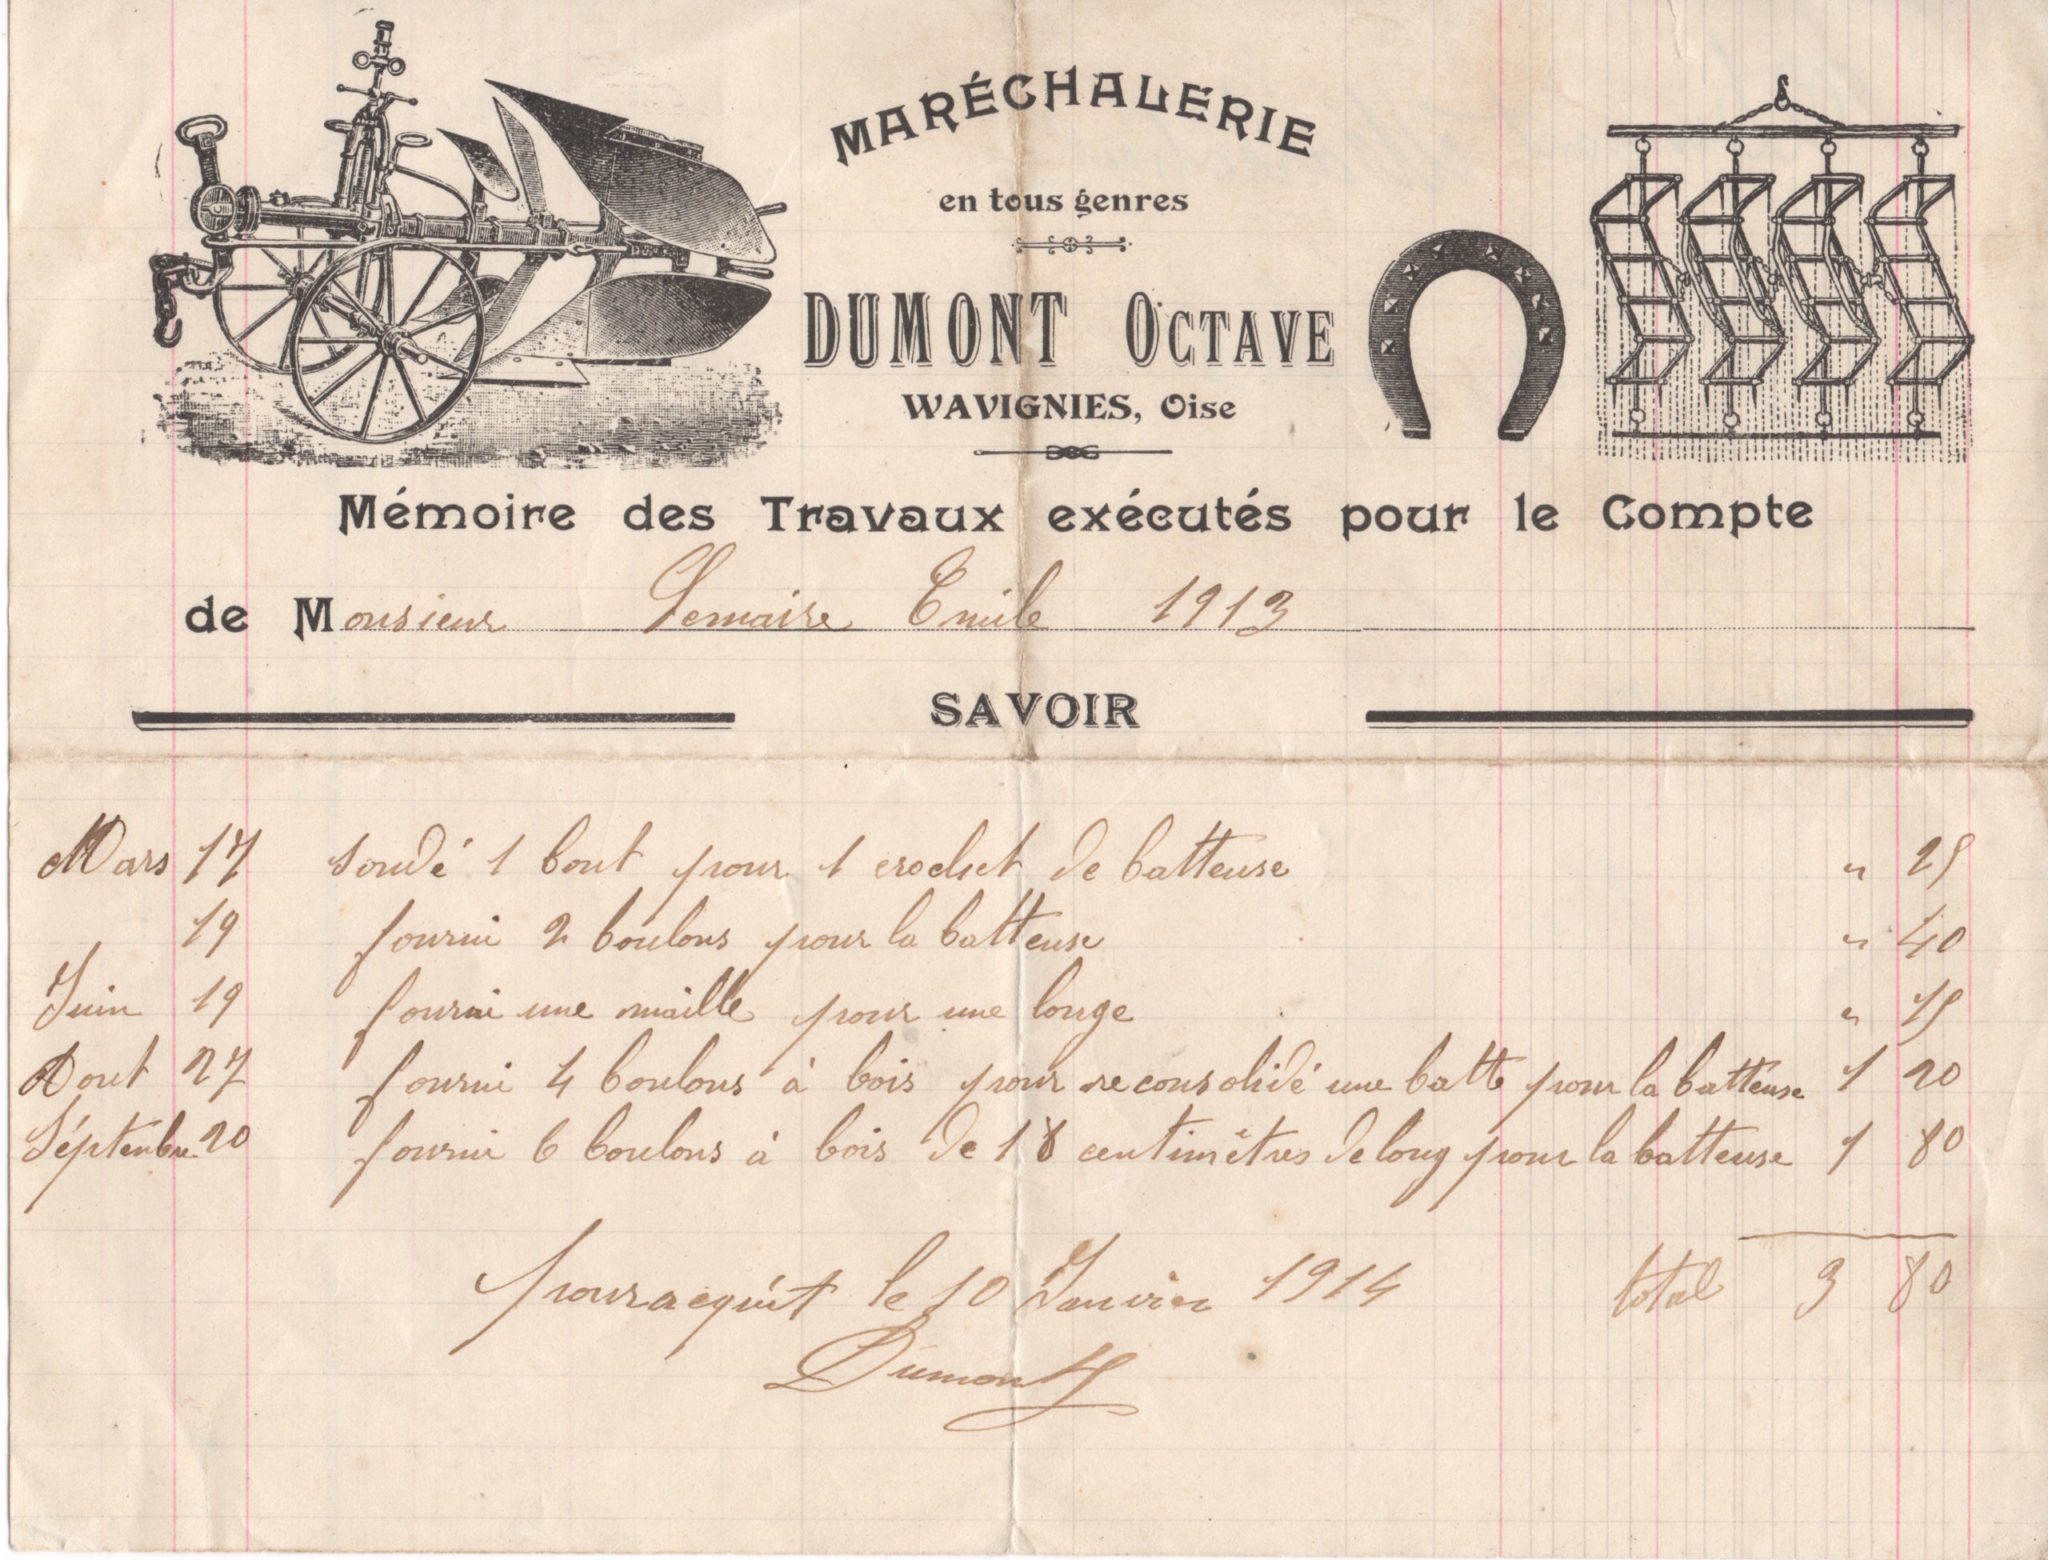 MARÉCHALERIE
en tous genres
DUMONT OCTAVE
WAVIGNIES, Oise
Mémoire des Travaux exécutés pour le Compte
de Monsieur Lemaire Emile 1913
SAVOIR
Mars 17 soudé 1 bout pour 1 crochet de batteuse " 25
19 fourni 2 boulons pour la batteuse " 40
Juin 19 fourni une maille pour une longe " 15
Aout 27 fourni 4 boulons à bois pour reconsolidé une batte pour la batteuse 1 20
Séptembre 20 fourni 6 boulons à bois de 18 centimètres de long pour la batteuse 1 80
total 3 80
pour acquit le 10 Janvier 1914
Dumont